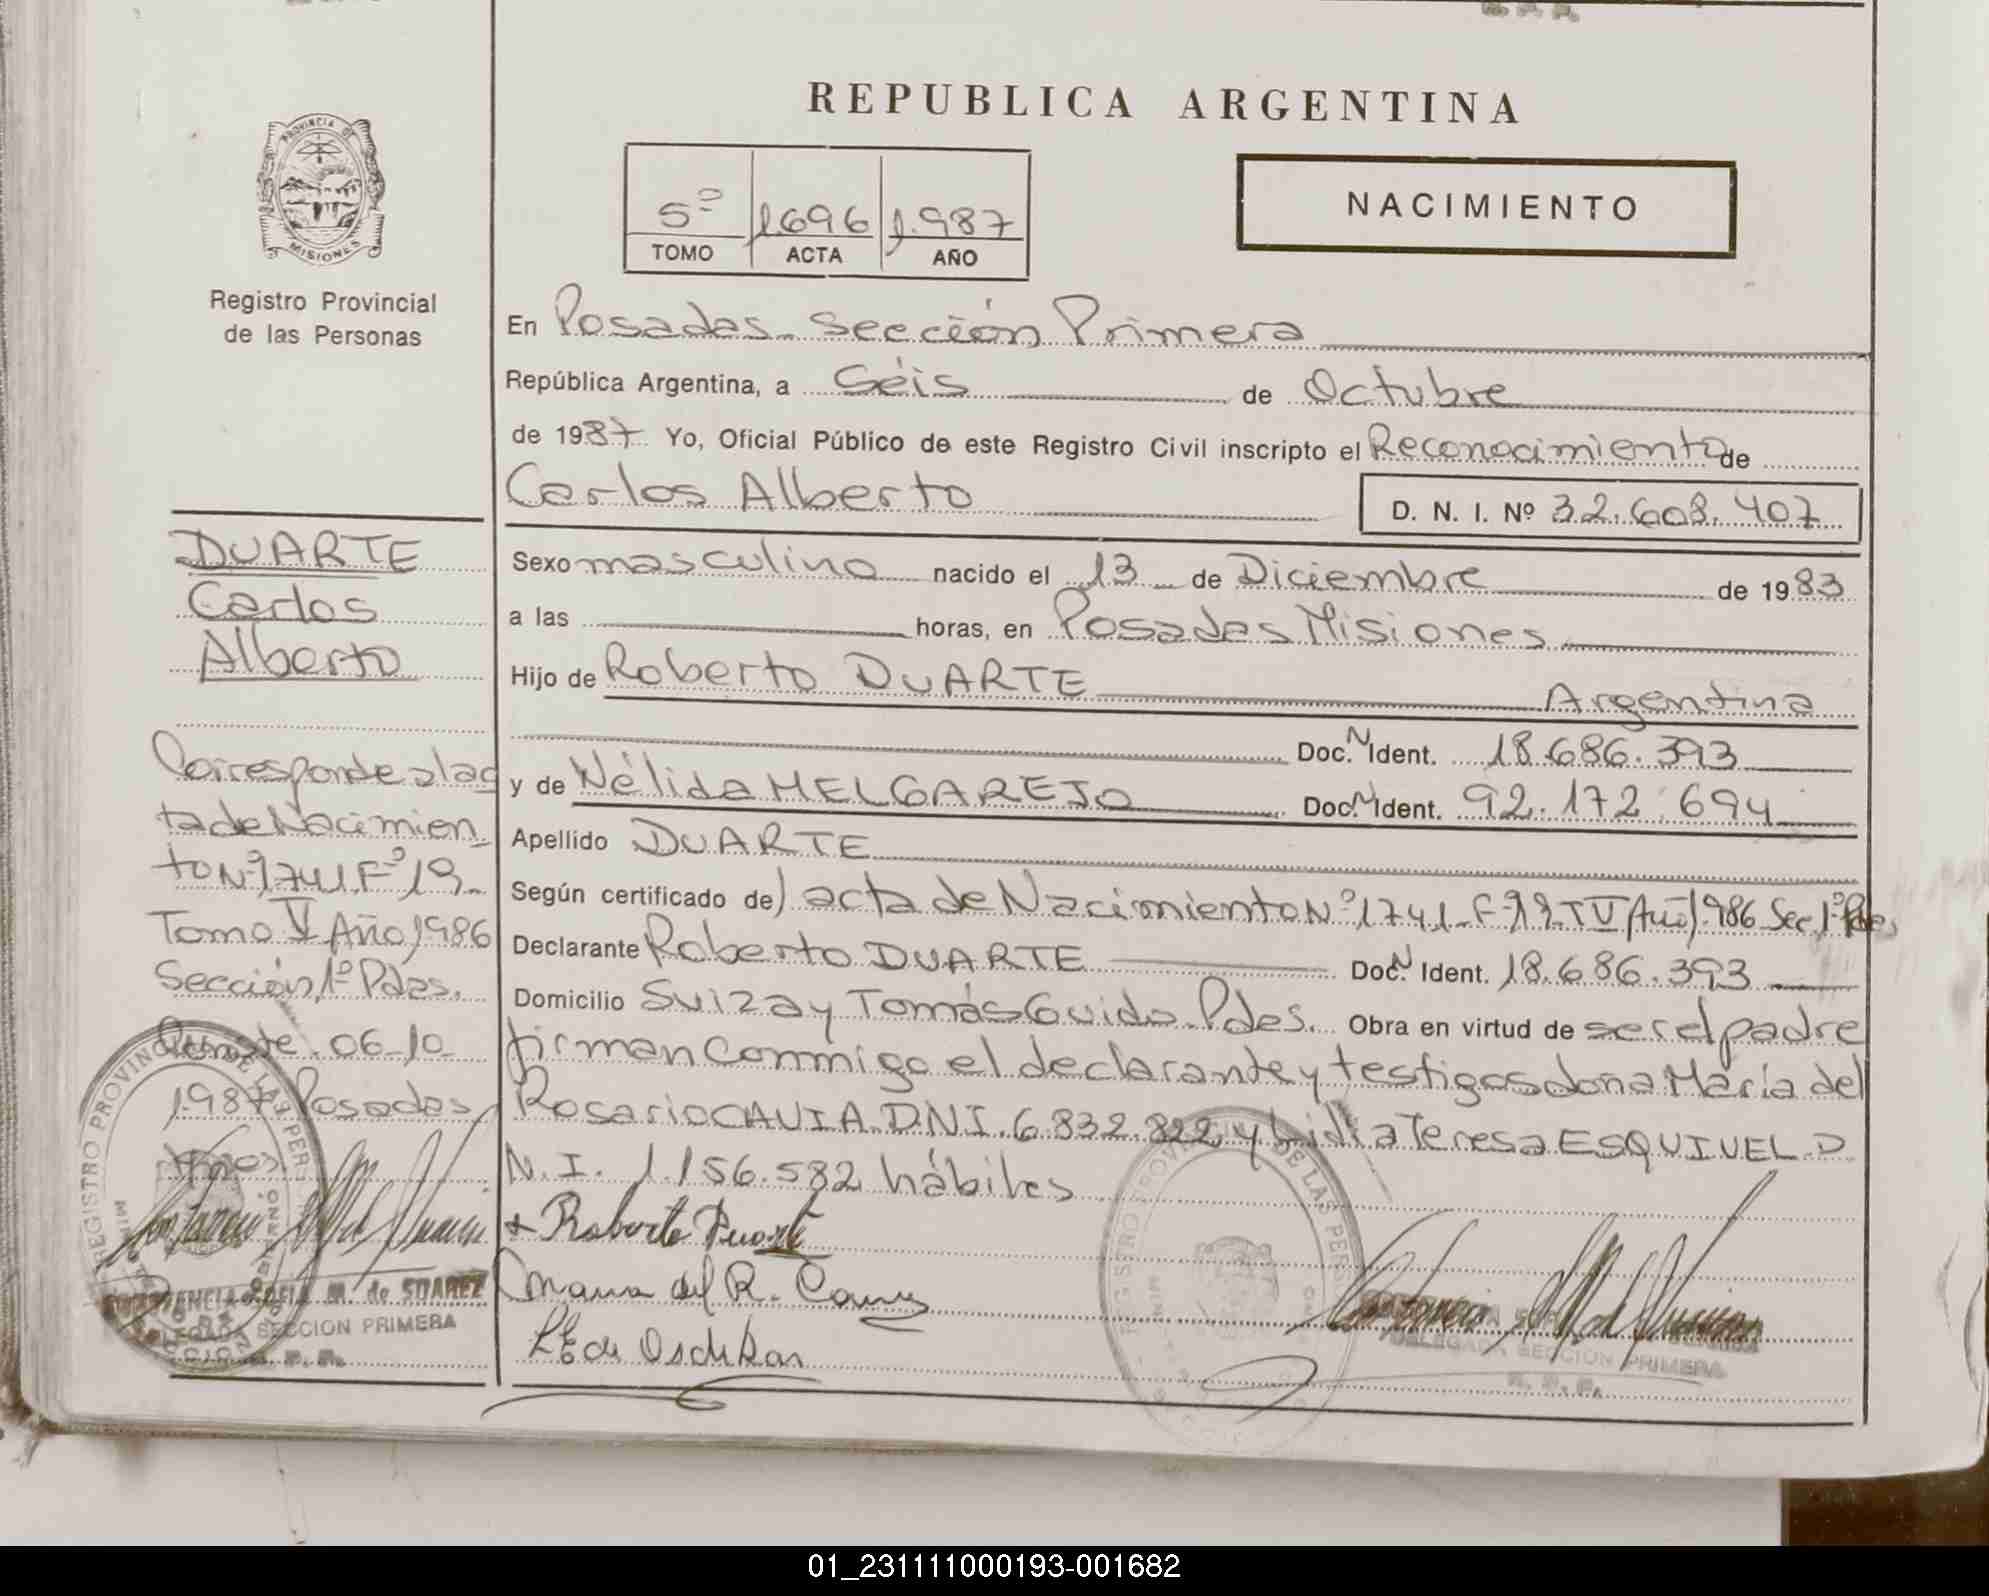 REPUBLICA ARGENTINA
PROVINCIA DE
MISIONES
Registro Provincial
de las Personas
5º 1696 1.987
TOMO ACTA AÑO
NACIMIENTO
En Posadas Sección Primera
República Argentina, a Séis de Octubre
de 1987 Yo, Oficial Público de este Registro Civil inscripto el Reconocimiento de
Carlos Alberto
D. N. I. Nº 32.608.407
Sexo masculino nacido el 13 de Diciembre de 1983
a las horas, en Posadas Misiones
Hijo de Roberto DUARTE Argentina
Doc. N Ident. 18.686.393
y de Nélida MELGAREJO Doc. N Ident. 92.172.694
Apellido DUARTE
Según certificado de) acta de Nacimiento Nº 1741 Fº 19 T V Año 1986 Sec. 1º Pdas
Declarante Roberto DUARTE Doc. N Ident. 18.686.393
Domicilio Suiza y Tomás Guido. Pdas. Obra en virtud de ser el padre
firman conmigo el declarante y testigos doña María del
Rosario CAUIA D.N.I. 6.832.822 y Lidia Teresa ESQUIVEL D
N.I. 1.156.582 hábiles
Roberto Duarte
Maria del R.
DUARTE
Carlos
Alberto
Corresponde al ac
ta de Nacimien
to Nº 1741 Fº 19
Tomo V Año 1986
Sección 1º Pdas.
Conste 06-10
1.987 Posadas
REGISTRO PROVINCIAL DE LAS PERS
M. de SUAREZ
DELEGADA SECCION PRIMERA
R. P. P.
REGISTRO PROVINCIAL DE LAS PERS
DELEGADA SECCION PRIMERA
R. P. P.
01_231111000193-001682